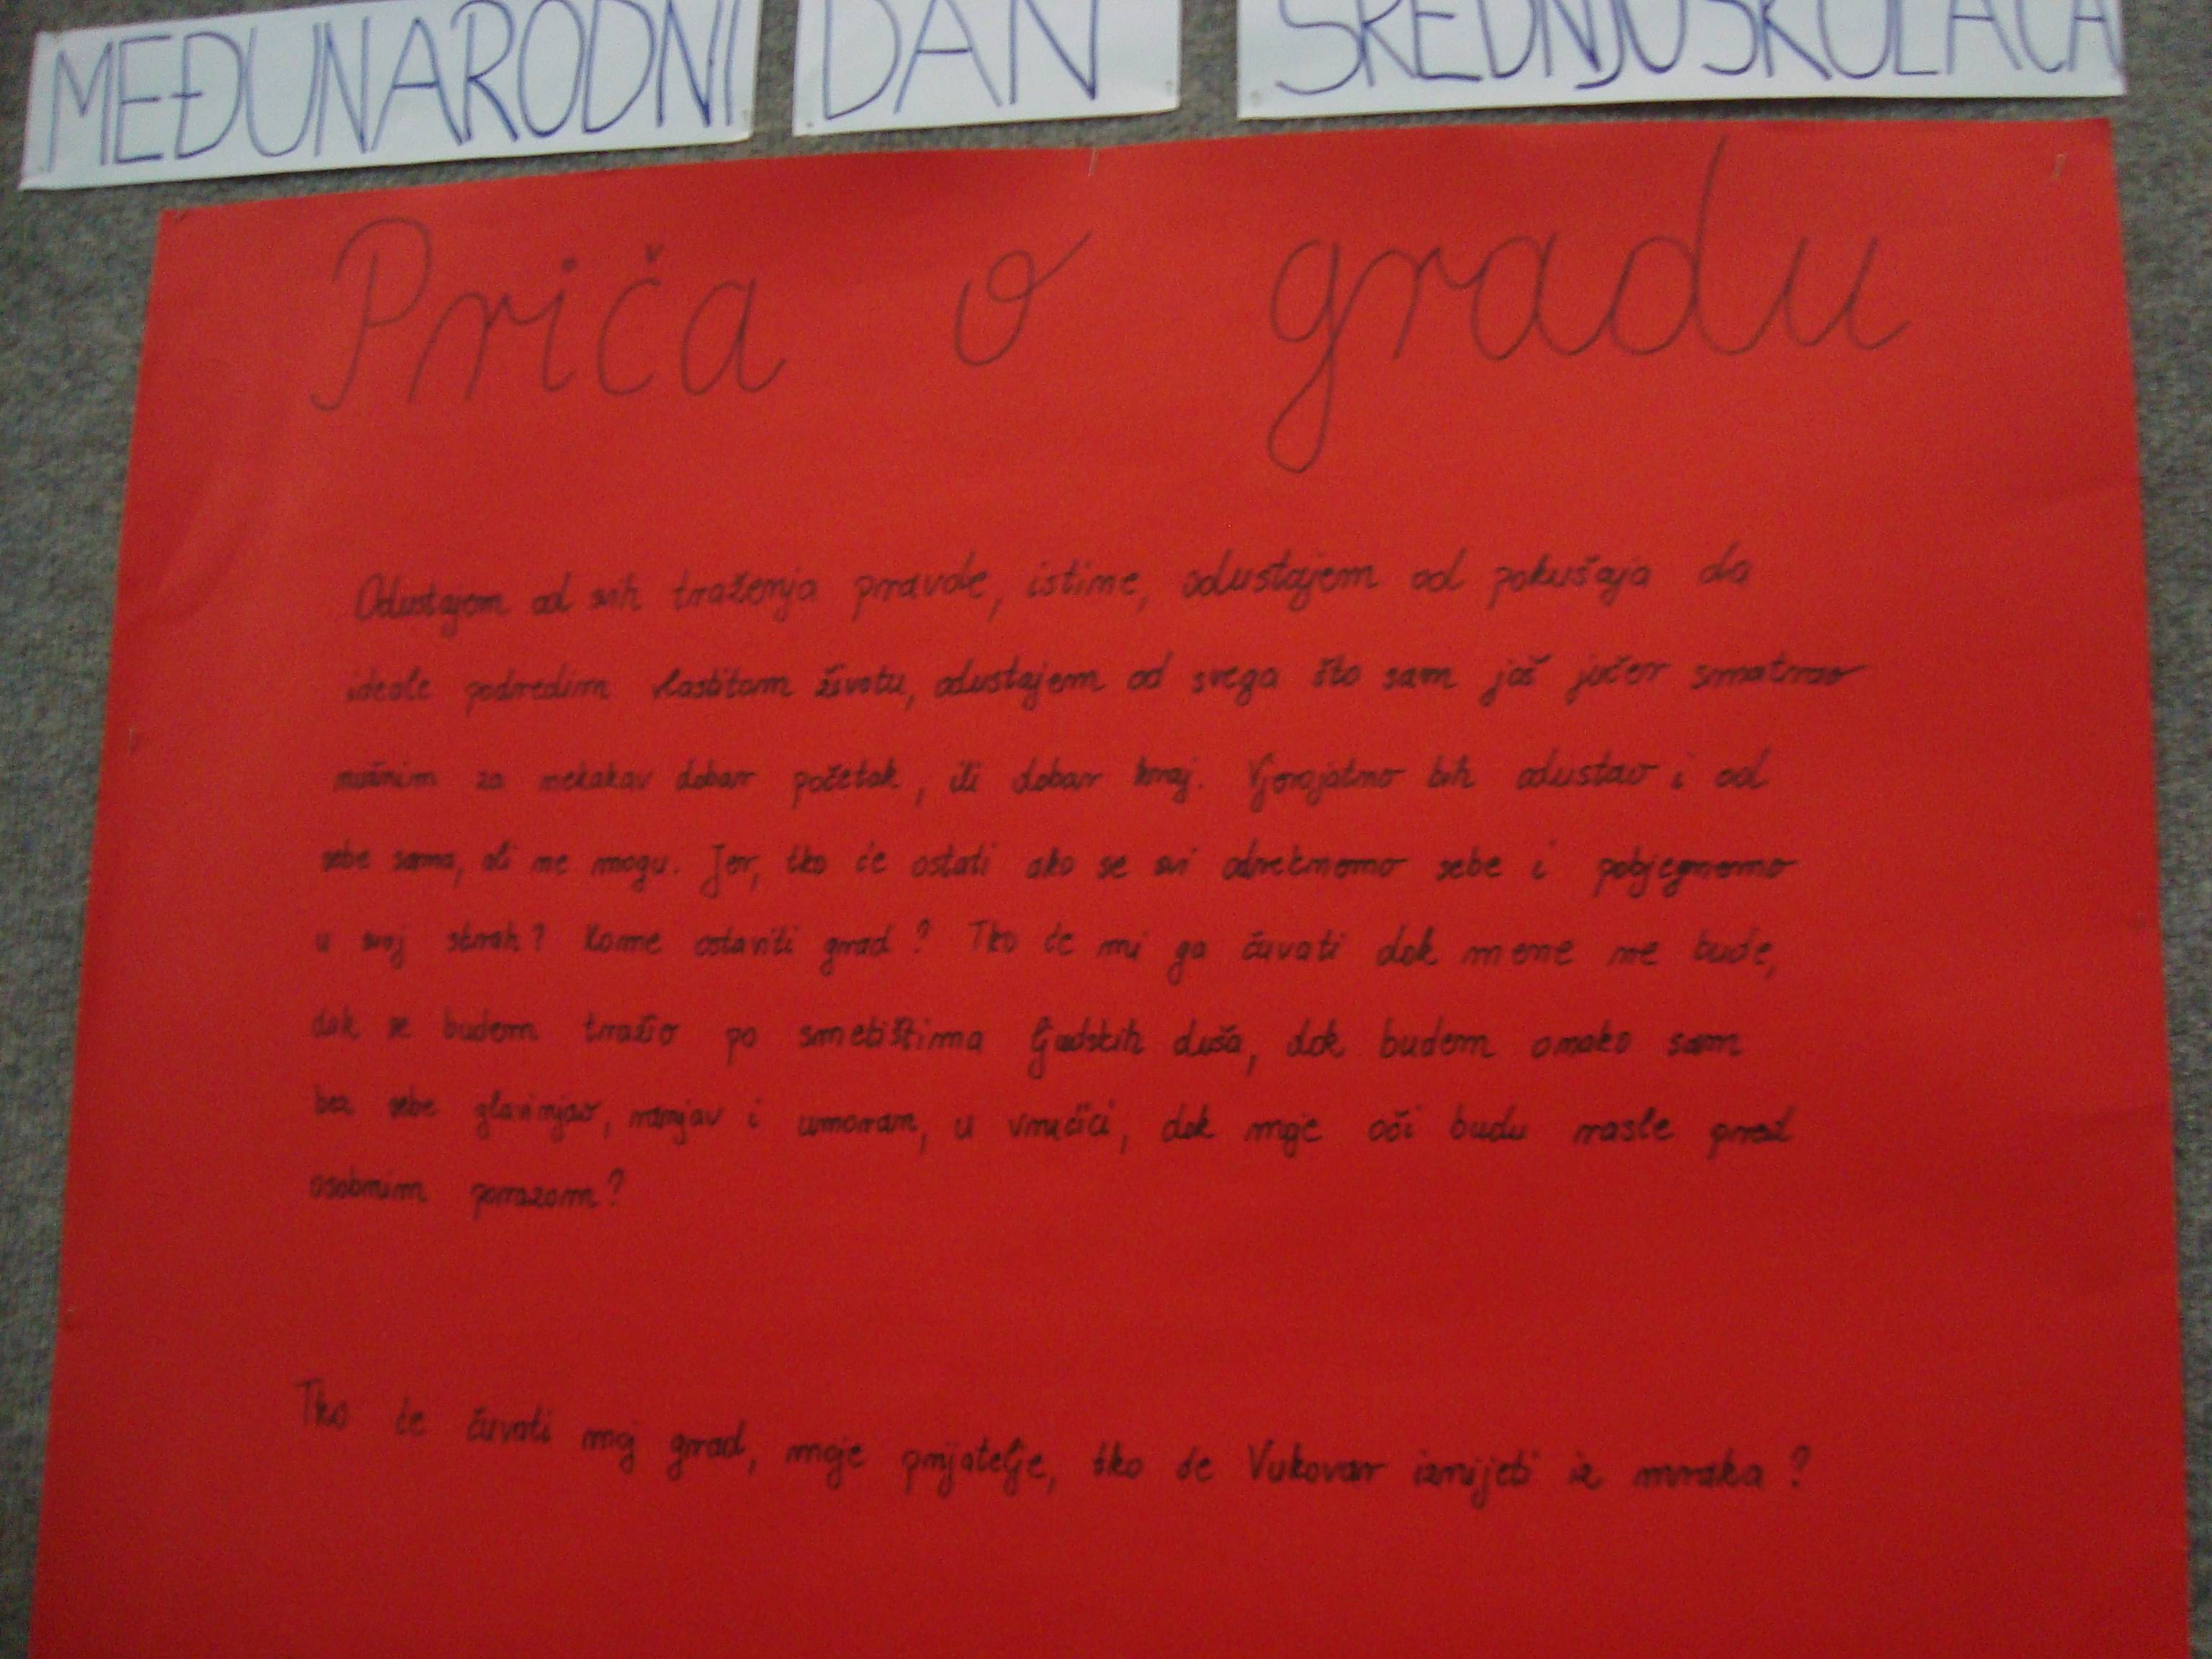 MEĐUNARODNI DAN SREDNJOŠKOLACA
Priča o gradu
Odustajem od svih traženja pravde, istine, odustajem od pokušaja da
ideale podredim vlastitom životu, odustajem od svega što sam još jučer smatrao
nužnim za nekakav dobar početak, ili dobar kraj. Vjerojatno bih odustao i od
sebe sama, ali ne mogu. Jer, tko će ostati ako se svi odreknemo sebe i pobjegnemo
u svoj strah? Kome ostaviti grad? Tko će mi ga čuvati dok mene ne bude,
dok se budem tražio po smetištima ljudskih duša, dok budem onako sam
bez sebe glavinjao, ranjav i umoran, u vrućici, dok moje oči budu rasle pred
osobnim porazom?
Tko će čuvati moj grad, moje prijatelje, tko će Vukovar iznijeti iz mraka?